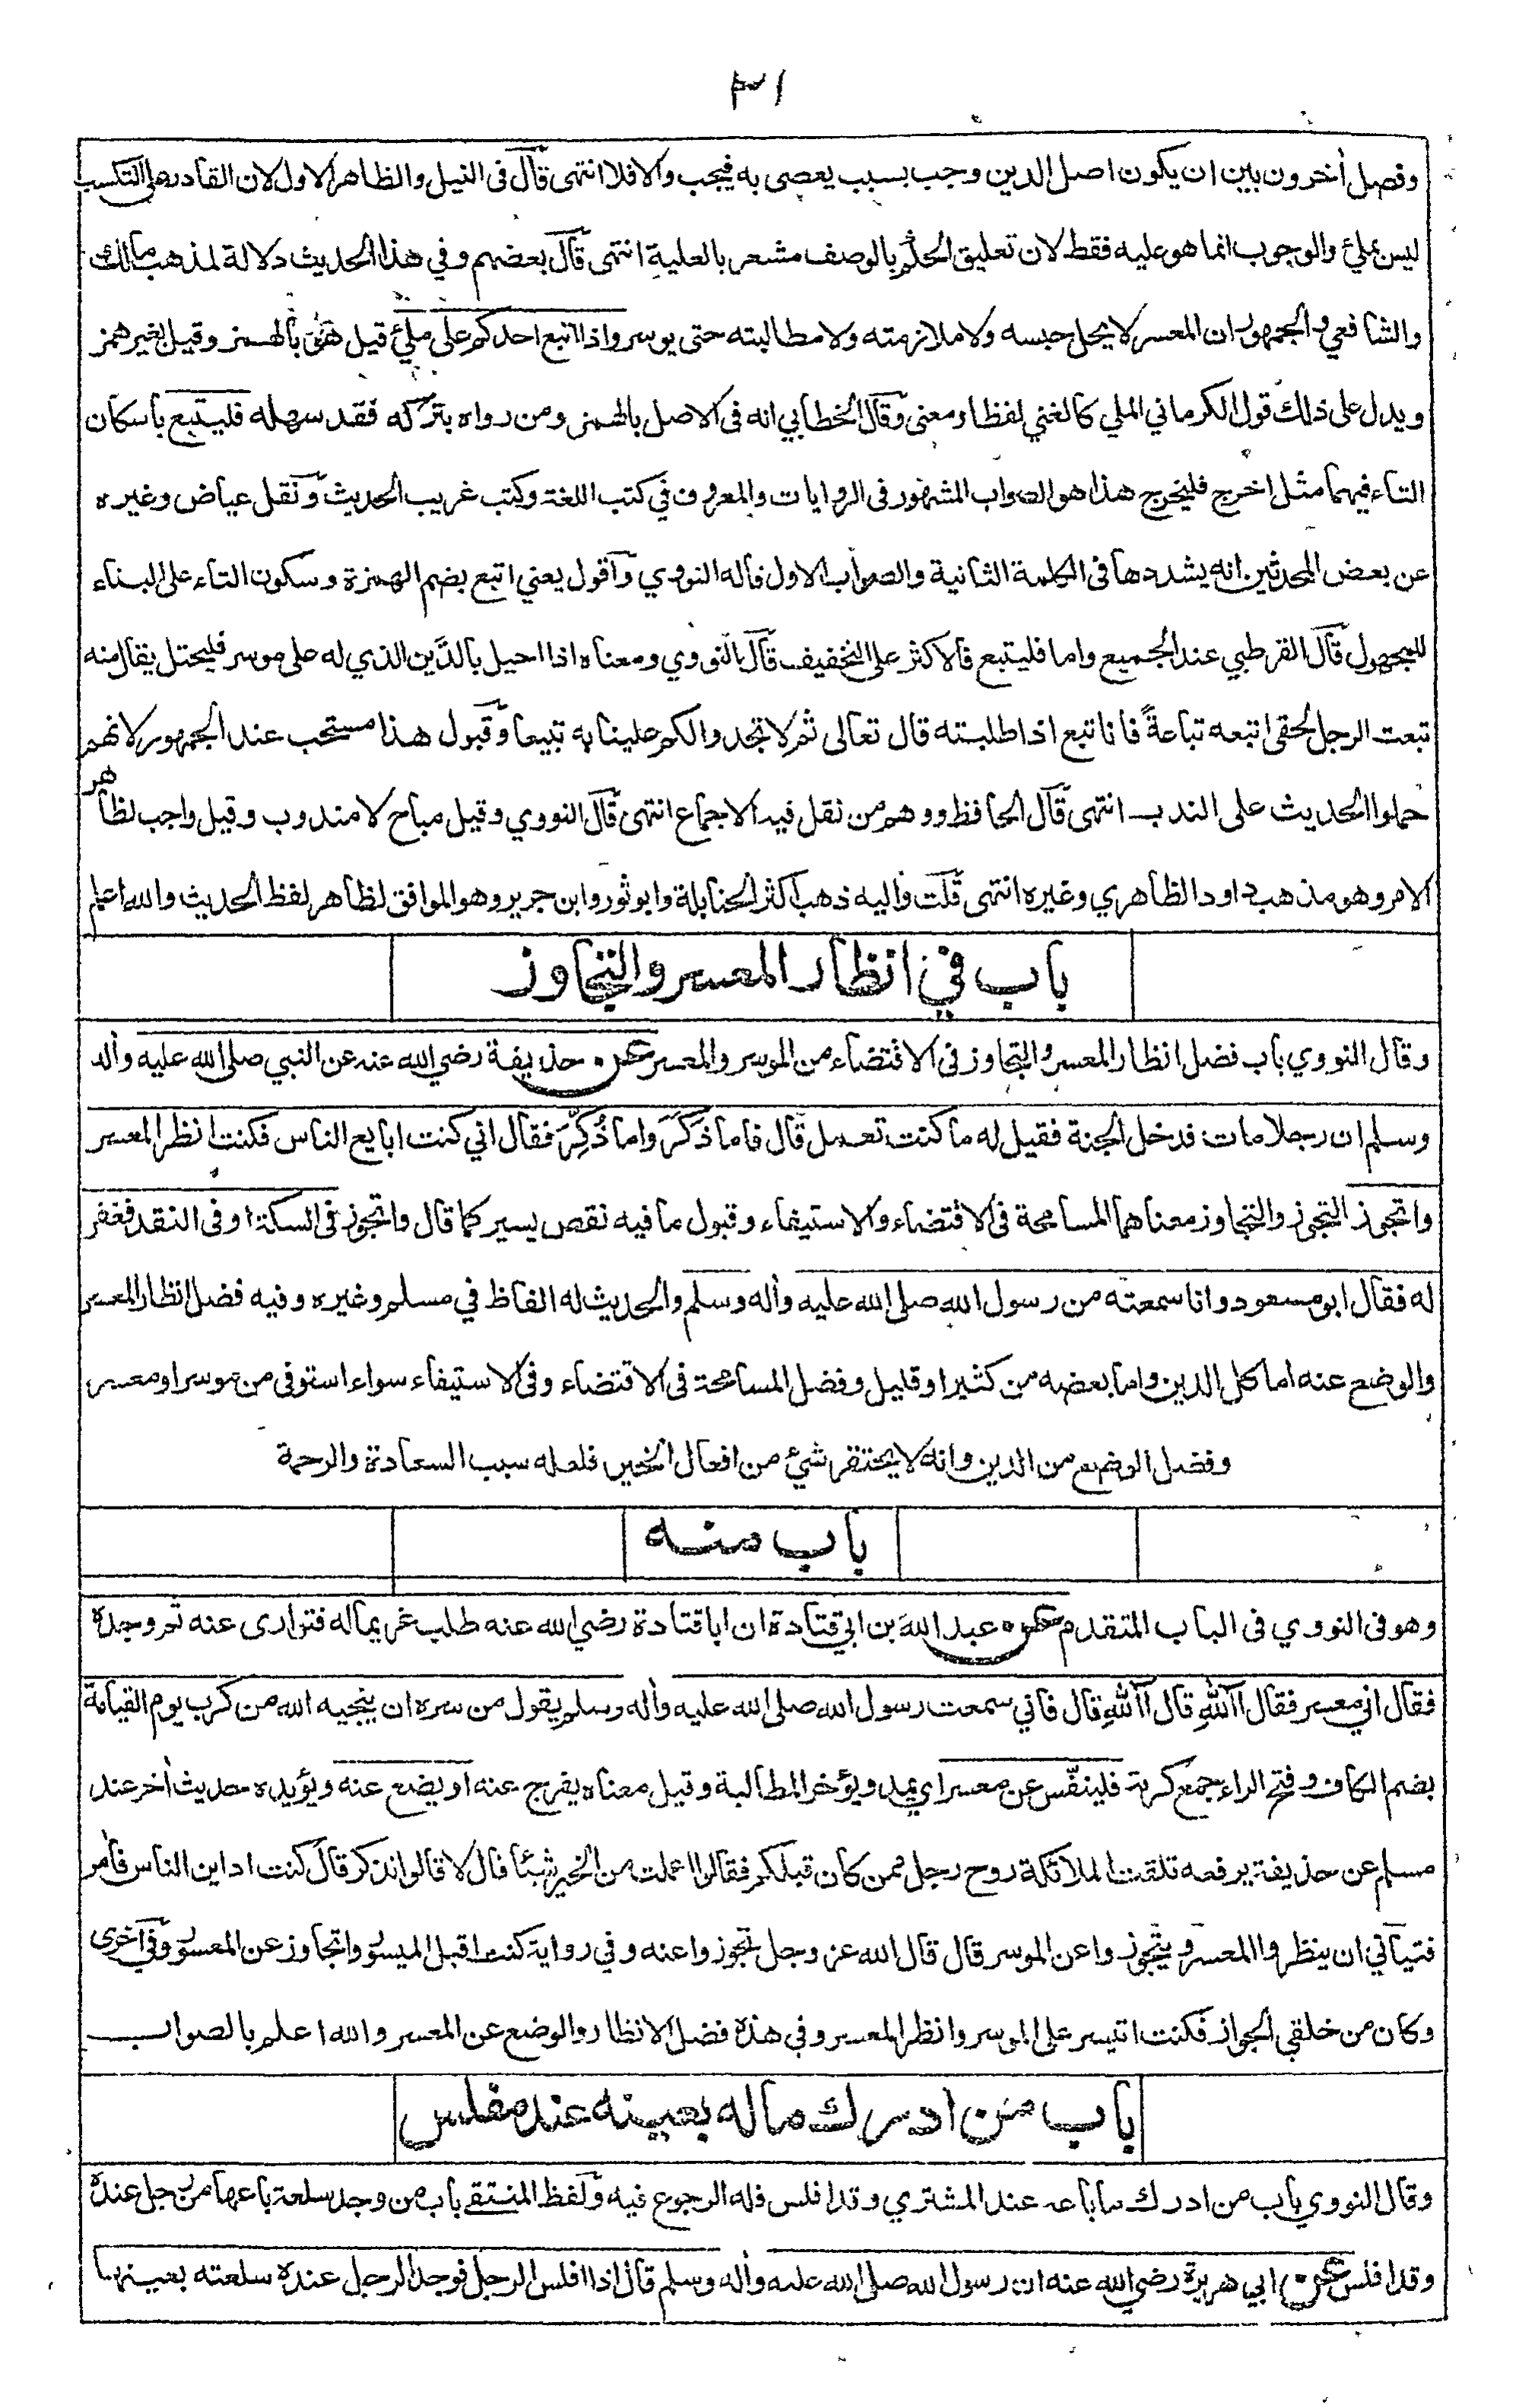 ٣١
وفصل أخرون بين ان يكون اصل الدين وجب بسبب يعصى به فيجب والا فلا انتهى قال فى النيل والظاهر الاول لان القادر على التكسب
ليس بملئ والوجوب انما هو عليه فقط لان تعليق الحكم بالوصف مشعر بالعلية انتهى قال بعضهم وفي هذا الحديث دلالة لمذهب مالك
والشافعي والجمهور ان المعسر لا يحل حبسه ولا ملازمته ولا مطالبته حتى يوسر واذا اتبع احدكم على ملئ قيل هو بالهمز وقيل بغير همز
ويدل على ذلك قول الكرماني الملي كالغني لفظا ومعنى وقال الخطابي انه فى الاصل بالهمز ومن رواه بتركه فقد سهله فليتبع باسكان
التاء فيهما مثل اخرج فليخرج هذا هو الصواب المشهور فى الروايات والمعروف في كتب اللغة وكتب غريب الحديث ونقل عياض وغيره
عن بعض المحدثين انه يشددها فى الكلمة الثانية والصواب الاول قاله النووي واقول يعني اتبع بضم الهمزة وسكون التاء على البناء
للمجهول قال القرطبي عند الجميع واما فليتبع فالاكثر على التخفيف قال النووي ومعناه اذا احيل بالدَّين الذي له على موسر فليحتل يقال منه
تبعت الرجل لحقى اتبعه تباعةً فانا تبع اذا طلبته قال تعالى ثم لا تجدوا لكم علينا به تبيعا وقبول هذا مستحب عند الجمهور لانهم
حملوا الحديث على الندب انتهى قال الحافظ ووهم من نقل فيه الاجماع انتهى قال النووي وقيل مباح لا مندوب وقيل واجب لظاهر
الامر وهو مذهب داود الظاهري وغيره انتهى قلت واليه ذهب اكثر الحنابلة وابو ثور وابن جرير وهو الموافق لظاهر لفظ الحديث والله اعلم
باب في انظار المعسر والتجاوز
وقال النووي باب فضل انظار المعسر والتجاوز فى الاقتضاء من الموسر والمعسر عن حذيفة رضي الله عنه عن النبي صلى الله عليه وأله
وسلم ان رجلا مات فدخل الجنة فقيل له ما كنت تعمل قال فاما ذَكَرَ واما ذُكِّرَ فقال اني كنت ابايع الناس فكنت انظر المعسر
واتجوز التجوز والتجاوز معناهما المسامحة فى الاقتضاء والاستيفاء وقبول ما فيه نقص يسير كما قال واتجوز فى السكة او فى النقد فغفر
له فقال ابو مسعود وانا سمعته من رسول الله صلى الله عليه وأله وسلم والحديث له الفاظ في مسلم وغيره وفيه فضل انظار المعسر
والوضع عنه اما كل الدين واما بعضه من كثير او قليل وفضل المسامحة فى الاقتضاء وفى الاستيفاء سواء استوفى من موسر او معسر
وفضل الوضع من الدين وانه لا يحتقر شئ من افعال الخير فلعله سبب السعادة والرحمة
باب منه
وهو فى النووي فى الباب المتقدم عن عبد الله بن ابي قتادة ان ابا قتادة رضي الله عنه طلب غريما له فتوارى عنه ثم وجده
فقال اني معسر فقال آللهِ قال آللهِ قال فاني سمعت رسول الله صلى الله عليه وأله وسلم يقول من سره ان ينجيه الله من كرب يوم القيامة
بضم الكاف وفتح الراء جمع كربة فلينفّس عن معسر اي يمد ويؤخر المطالبة وقيل معناه يفرج عنه او يضع عنه ويؤيده حديث أخر عند
مسلم عن حذيفة يرفعه تلقت الملائكة روح رجل ممن كان قبلكم فقالوا اعملت من الخير شيئا قال لا قالوا تذكر قال كنت اداين الناس فأمر
فتياني ان ينظروا المعسر ويتجوزوا عن الموسر قال قال الله عز وجل تجوزوا عنه وفي رواية كنت اقبل الميسور واتجاوز عن المعسور وفي اخرى
وكان من خلقي الجواز فكنت اتيسر على الموسر وانظر المعسر وفي هذه فضل الانظار والوضع عن المعسر والله اعلم بالصواب
باب من ادرك ماله بعينه عند مفلس
وقال النووي باب من ادرك ما باعه عند المشتري وقد افلس فله الرجوع فيه ولفظ المنتقى باب من وجد سلعة باعها من رجل عنده
وقد افلس عن ابي هريرة رضي الله عنه ان رسول الله صلى الله عليه وأله وسلم قال اذا افلس الرجل فوجد الرجل عنده سلعته بعينها